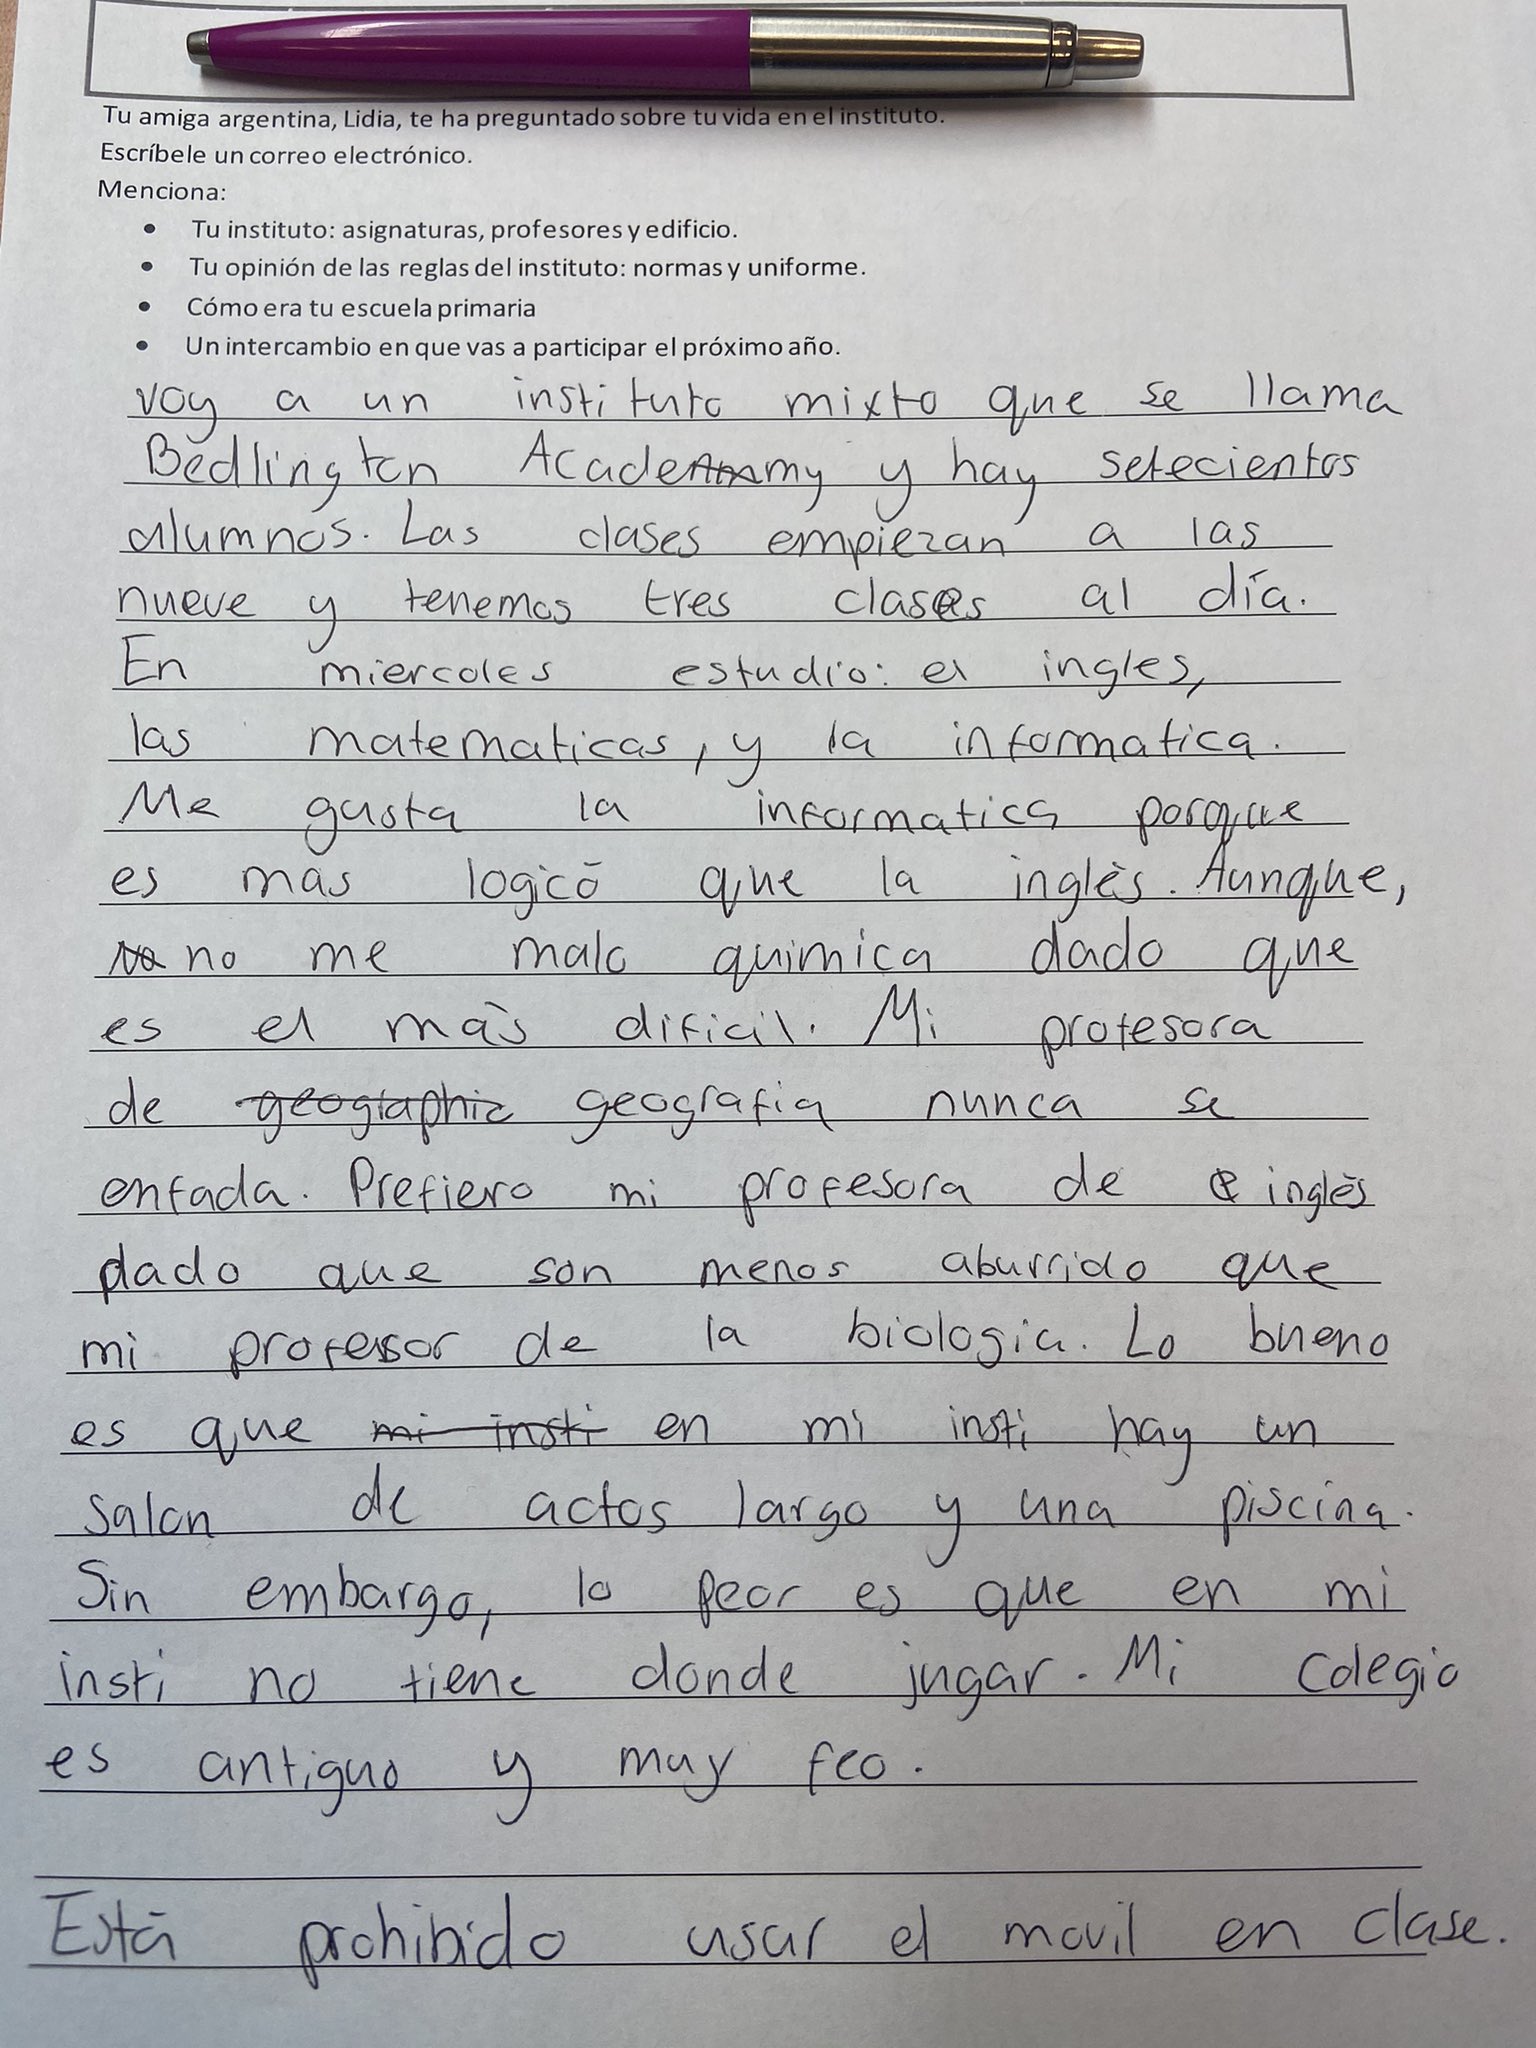 Tu amiga argentina, Lidia, te ha preguntado sobre tu vida en el instituto.
Escríbele un correo electrónico.
Menciona:
• Tu instituto: asignaturas, profesores y edificio.
• Tu opinión de las reglas del instituto: normas y uniforme.
• Cómo era tu escuela primaria
• Un intercambio en que vas a participar el próximo año.
voy a un instituto mixto que se llama
Bedlington Academy y hay setecientos
alumnos. Las clases empiezan a las
nueve y tenemos tres clases al día.
En miercoles estudio: el ingles,
las matematicas, y la informatica.
Me gusta la informatica porque
es mas logicó que la inglès. Aunque,
no me malo quimica dado que
es el màs dificil. Mi profesora
de geografia nunca se
enfada. Prefiero mi profesora de inglès
dado que son menos aburrido que
mi profesor de la biologia. Lo bueno
es que mi insti en mi insti hay un
salon de actos largo y una piscina.
Sin embargo, lo peor es que en mi
insti no tiene donde jugar. Mi colegio
es antiguo y muy feo.
Está prohibido usar el movil en clase.